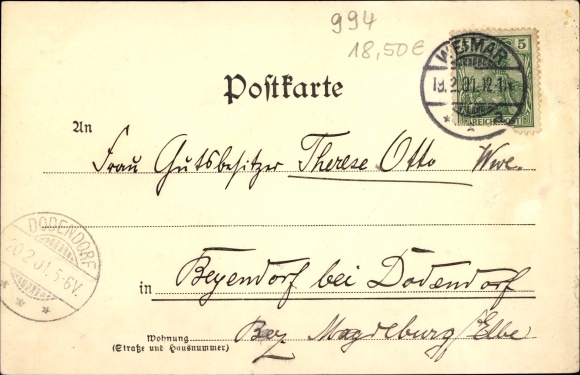 994
18,50€
WEIMAR
19.2.01.12-1N
5
REICHSPOST
Postkarte
An
Frau Gutsbesitzer Therese Otto Wwe.
DODENDORF
20.2.01.5-6V.
in Beyendorf bei Dodendorf
Wohnung
(Straße und Hausnummer)
Bez Magdeburg/Elbe